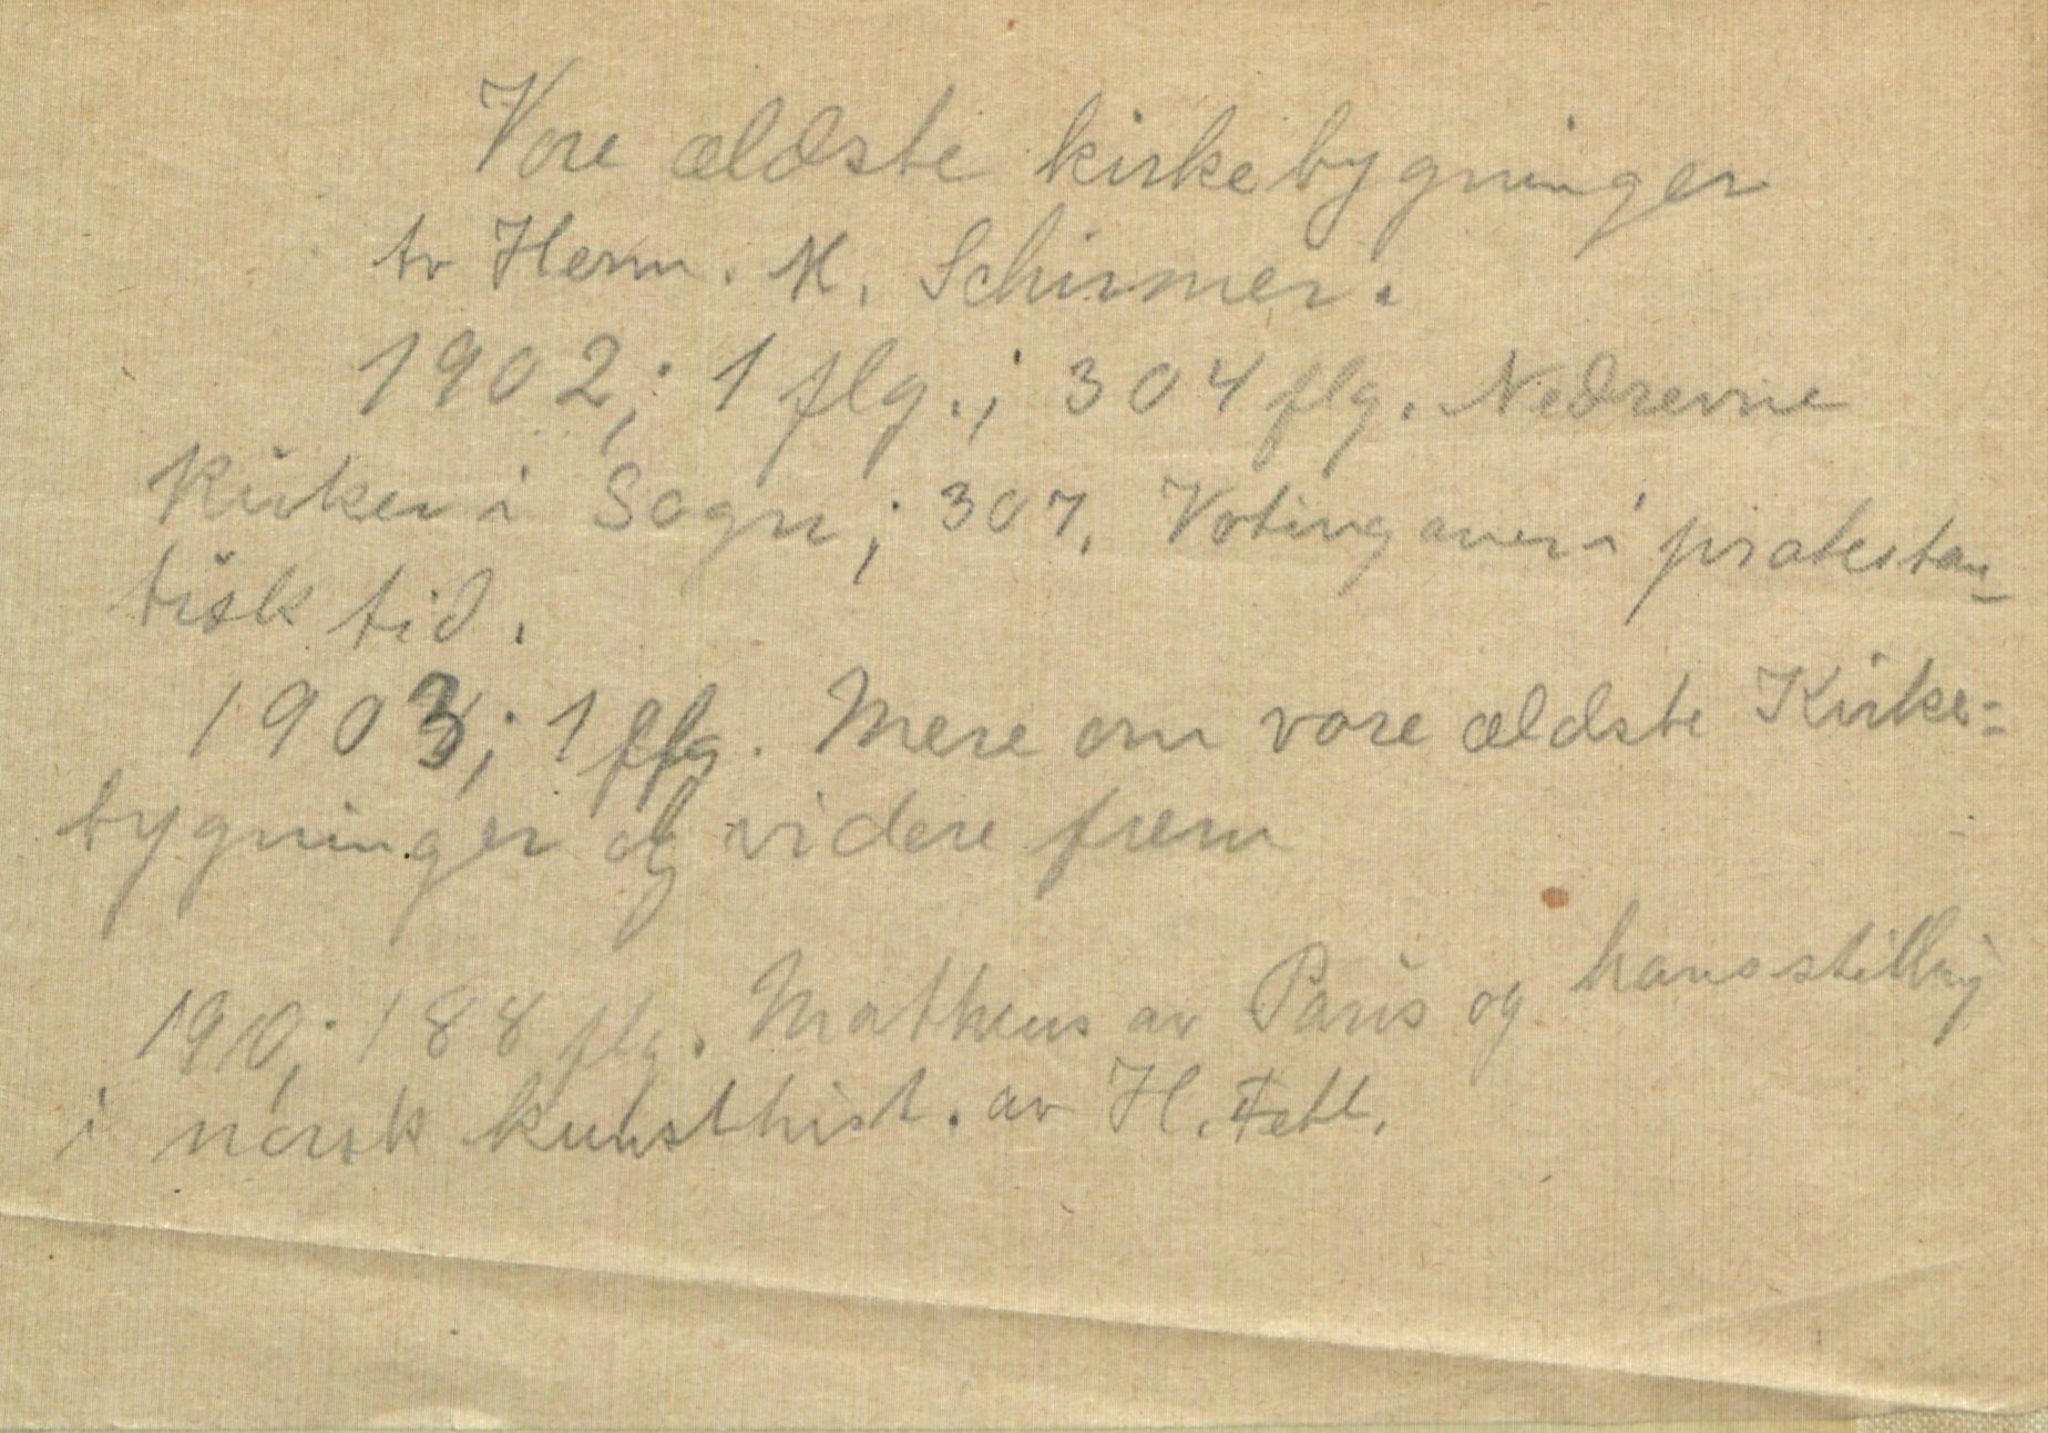 Vore ældste kirkebygninger
av Herm. M. Schirmer.
1902; 1 flg.; 304 flg. Nedrevne
Kirker i Sogn; 307. Votivgaver i protestan-
tisk tid.
1903; 1 flg. Mere om vore ældste Kirke=
bygninger og videre frem
1910; 188 flg. Matheus av Paris og hans stilling
i norsk kunsthist. av H. Fett.